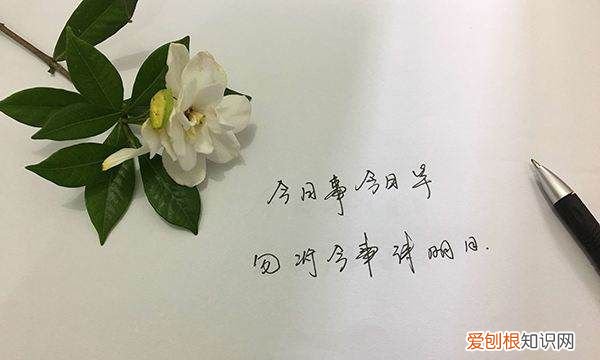 今日事今日毕
勿将今事待明日.
爱刨根知识网